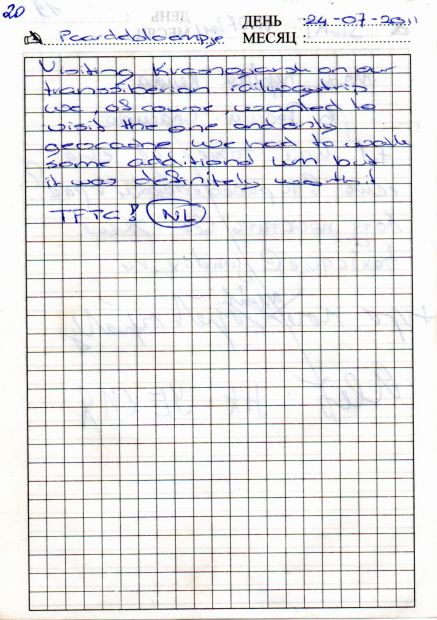 20
ДЕНЬ :24-07-2011
Paardebloempje МЕСЯЦ :
Visiting Krasnoyarsk on our
transsiberian railwaytrip
we, of course, wanted to
visit the one and only
geocache. We had to walk
some additional km but
it was definitely worth it
TFTC! NL